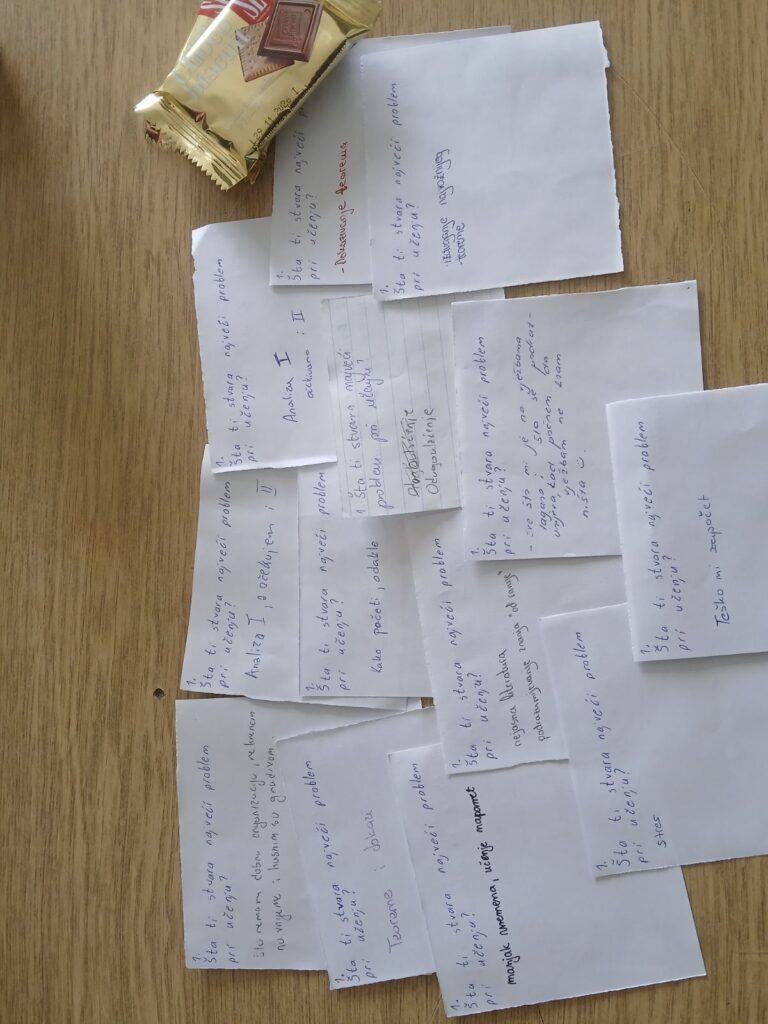 1.
Šta ti stvara najveći problem
pri učenju?
što nemam dobru organizaciju, ne krenem
na vrijeme i kasnim sa gradivom.
1.
Šta ti stvara najveći problem
pri učenju?
Analiza I, a očekujem i II
1.
Šta ti stvara najveći problem
pri učenju?
Analiza I
očekivano i II
1.
Šta ti stvara najveći problem
pri učenju?
Teoreme i dokazi
1.
Šta ti stvara najveći problem
pri učenju?
Kako početi, odakle
1 Šta ti stvara najveći
problem pri učenju?
Odugovlačenje
Šta ti stvara najveći
pri učenju?
- Dokazivanje teorema
1.
Šta ti stvara najveći problem
pri učenju?
izdvajanje najvažnijeg
-teoreme
1.
Šta ti stvara najveći problem
pri učenju?
manjak vremena, učenje napamet
1.
Šta ti stvara najveći problem
pri učenju?
nejasna literatura
podrazumijevanje znanja "od ranije"
1.
Šta ti stvara najveći problem
pri učenju?
- sve što mi je na vježbama
lagano i što se
kad počnem da
vježbam ne znam
ništa
1.
Šta ti stvara najveći problem
pri učenju?
stres
1.
Šta ti stvara najveći problem
pri učenju?
Teško mi započet